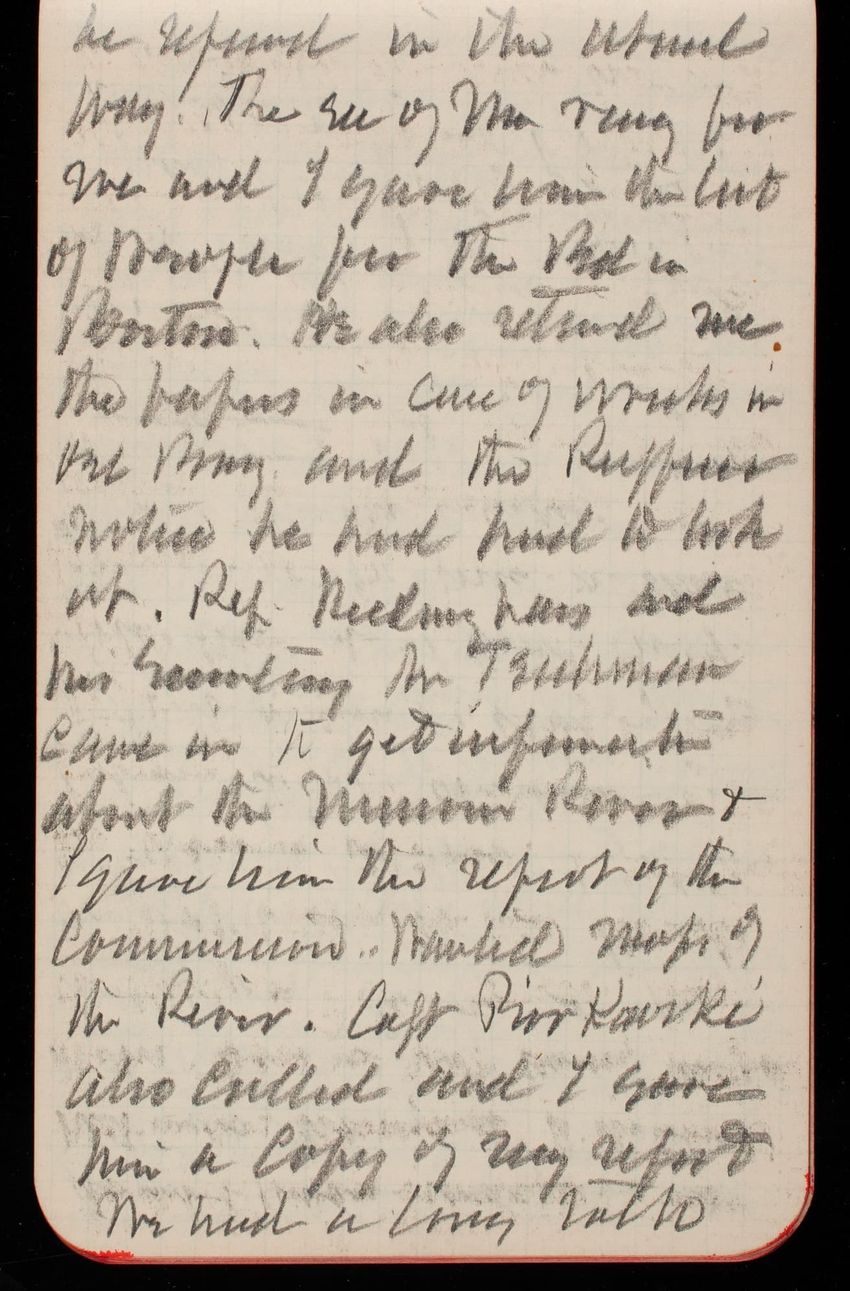 be refused in the usual
way. The Sec of War rang for
me and I gave him the list
of people for the Bd in
Boston. He also returned me
the papers in case of works in
and the Ruffner
notice he had had to look
at. Rep. and
his Secretary Mr
came in to get information
about the Missouri River &
I gave him the report of the
Commission. Wanted maps of
the River. Capt Piorkowski
also called and I gave
him a copy of my report
We had a long talk